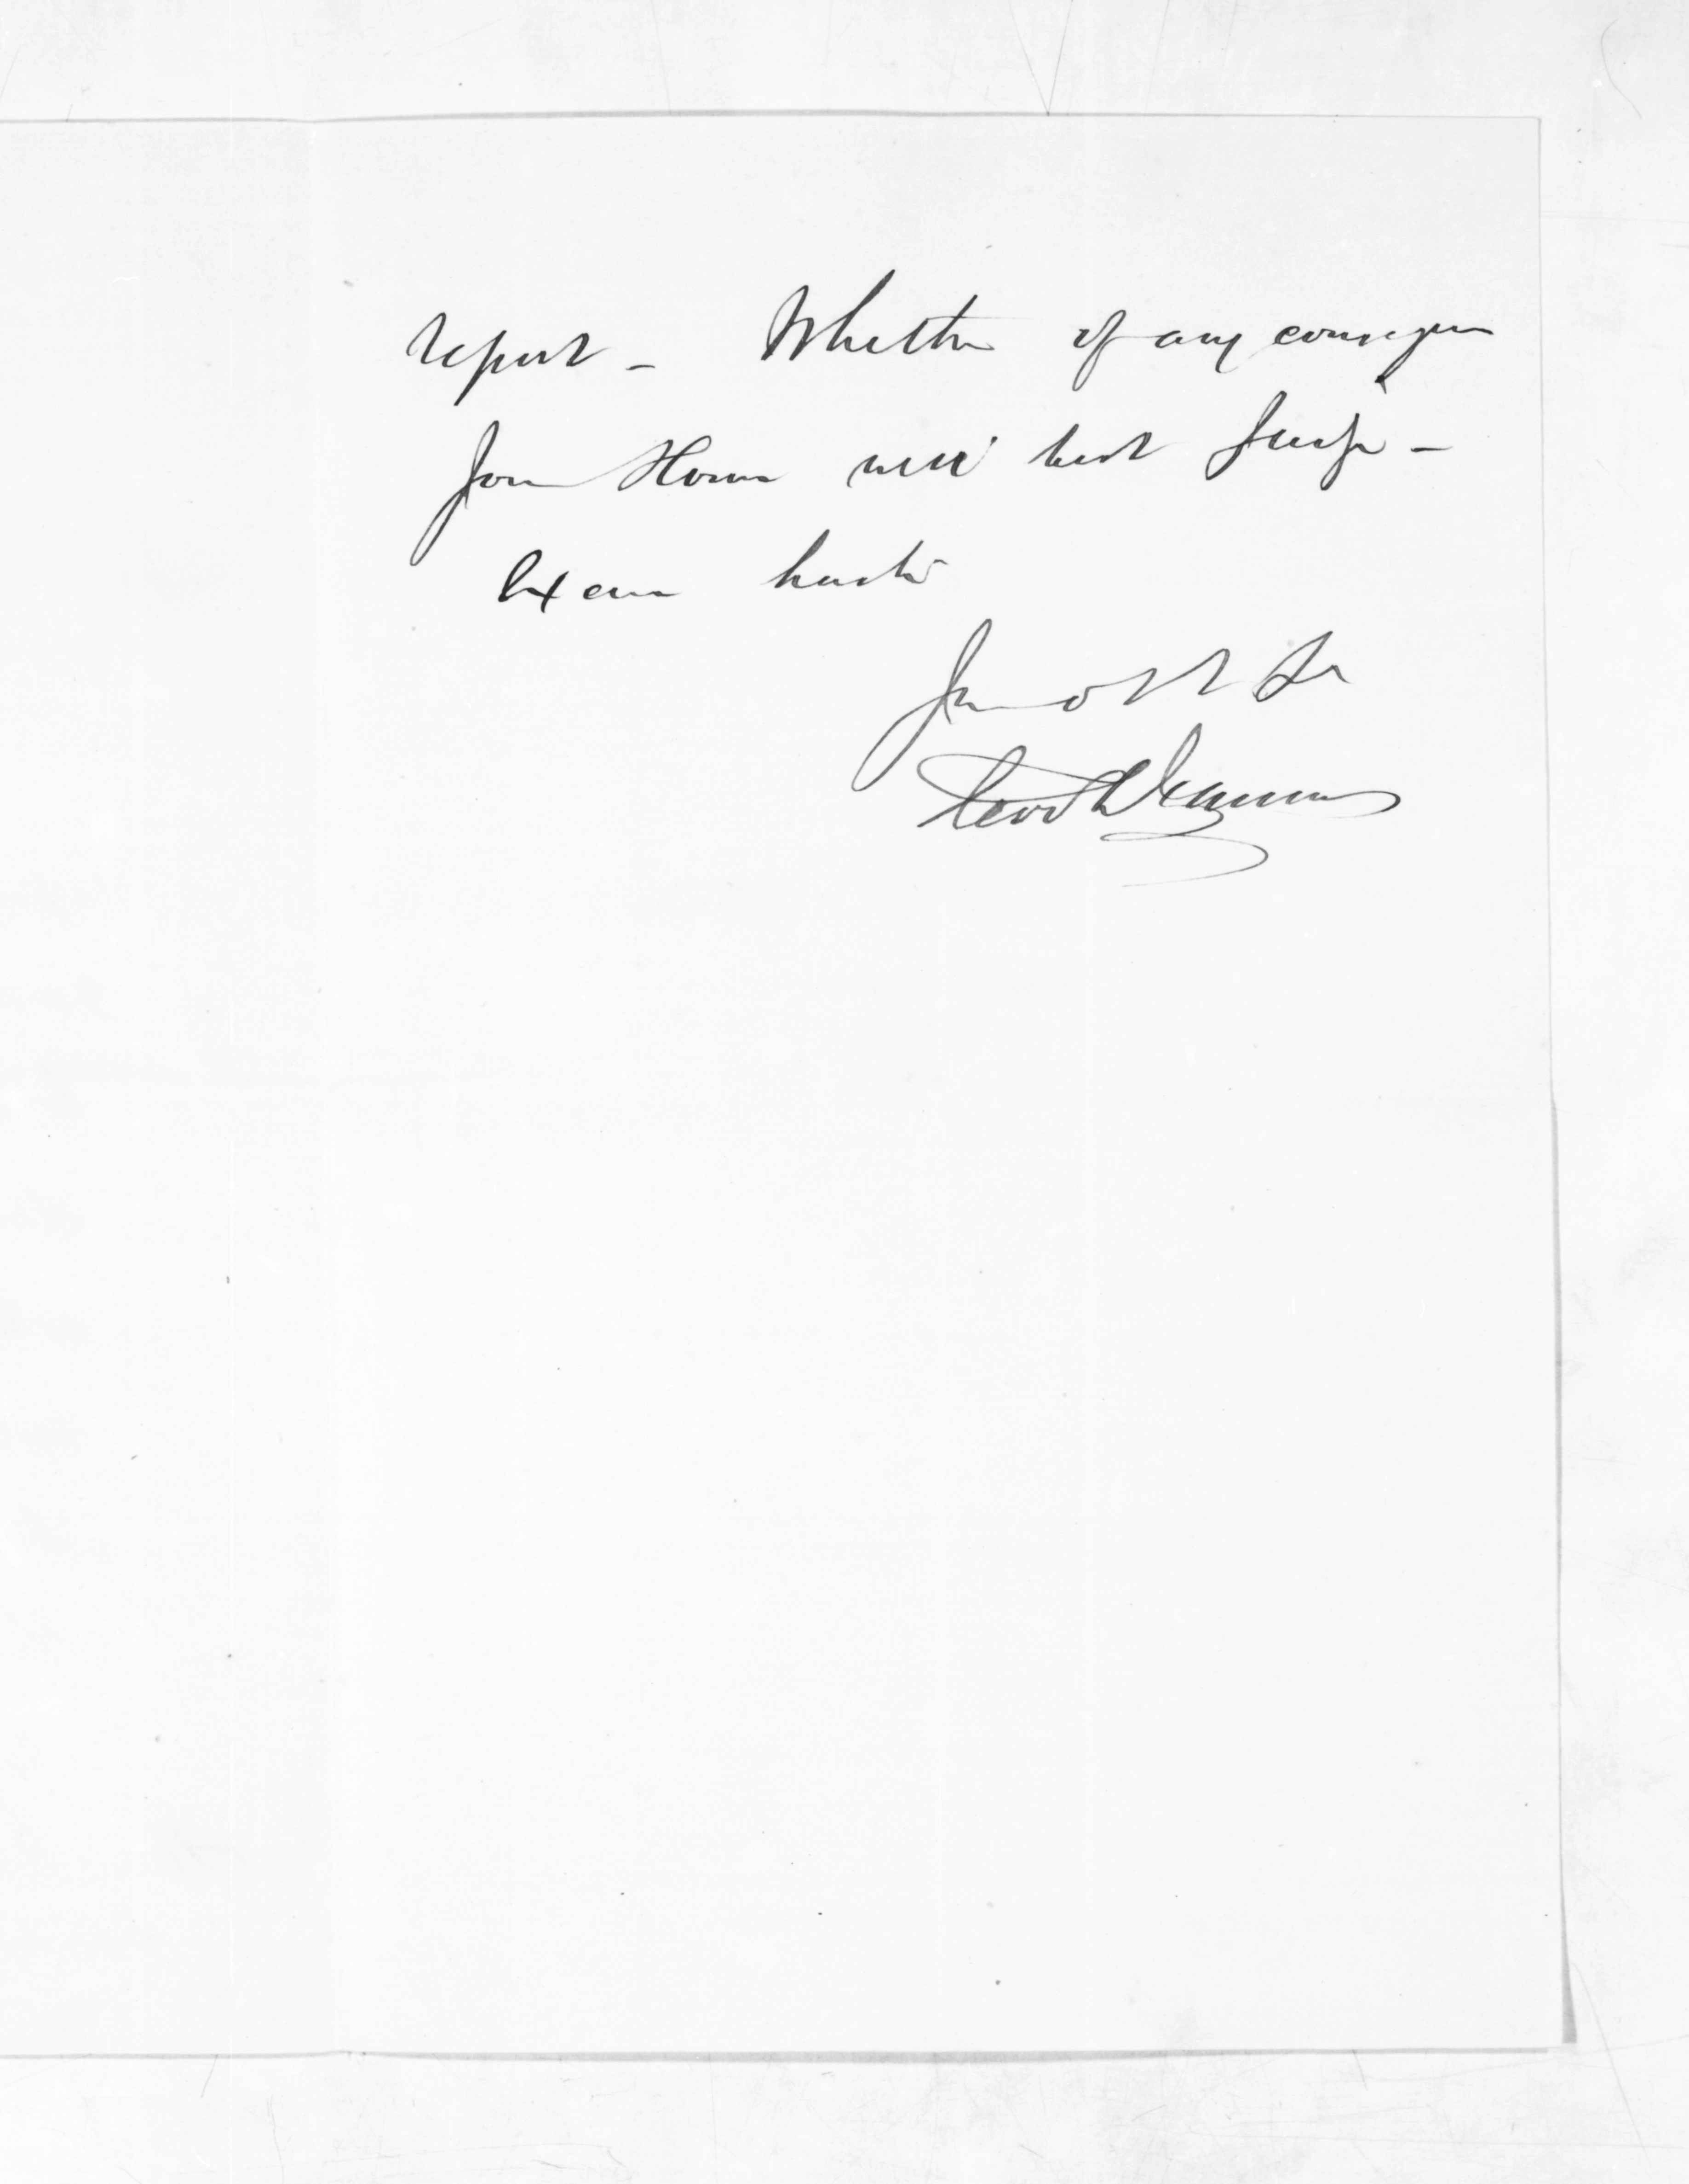 report - Whether of any consequence
Your Honor will best judge -
Excuse haste
Your obt Sr